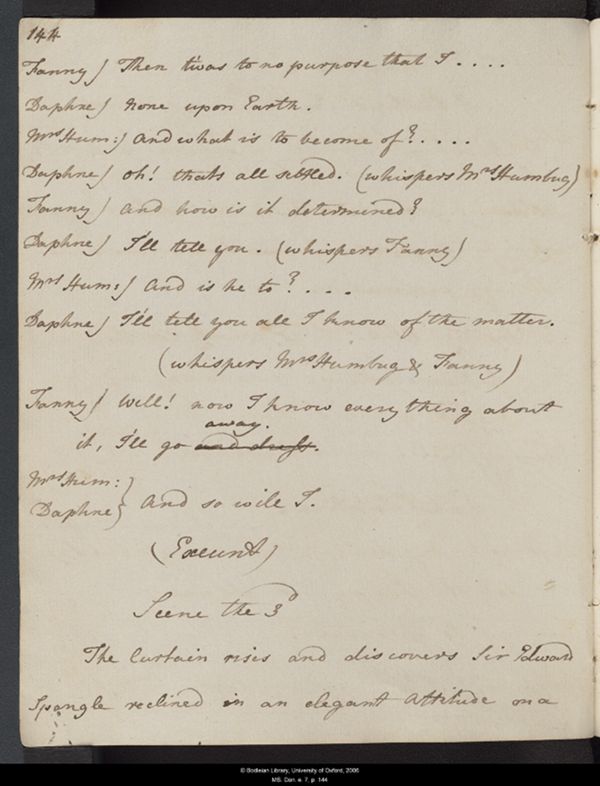 144
Fanny) Then twas to no purpose that I . . . .
Daphne) none upon Earth.
Mrs Hum:) And what is to become of? . . . .
Daphne) oh! thats all settled. (whispers Mrs Humbug)
Fanny) And how is it determined?
Daphne) I'll tell you. (whispers Fanny)
Mrs Hum:) And is he to? . . .
Daphne) I'll tell you all I know of the matter.
(whispers Mrs Humbug & Fanny)
Fanny) Well! now I know everything about
away.
it, I'll go and dress.
Mrs Hum: }
Daphne } And so will I.
(Exeunt)
Scene the 3d
The Curtain rises and discovers Sir Edward
Spangle reclined in an elegant Attitude on a
© Bodleian Library, University of Oxford, 2006
MS. Don. e. 7, p. 144